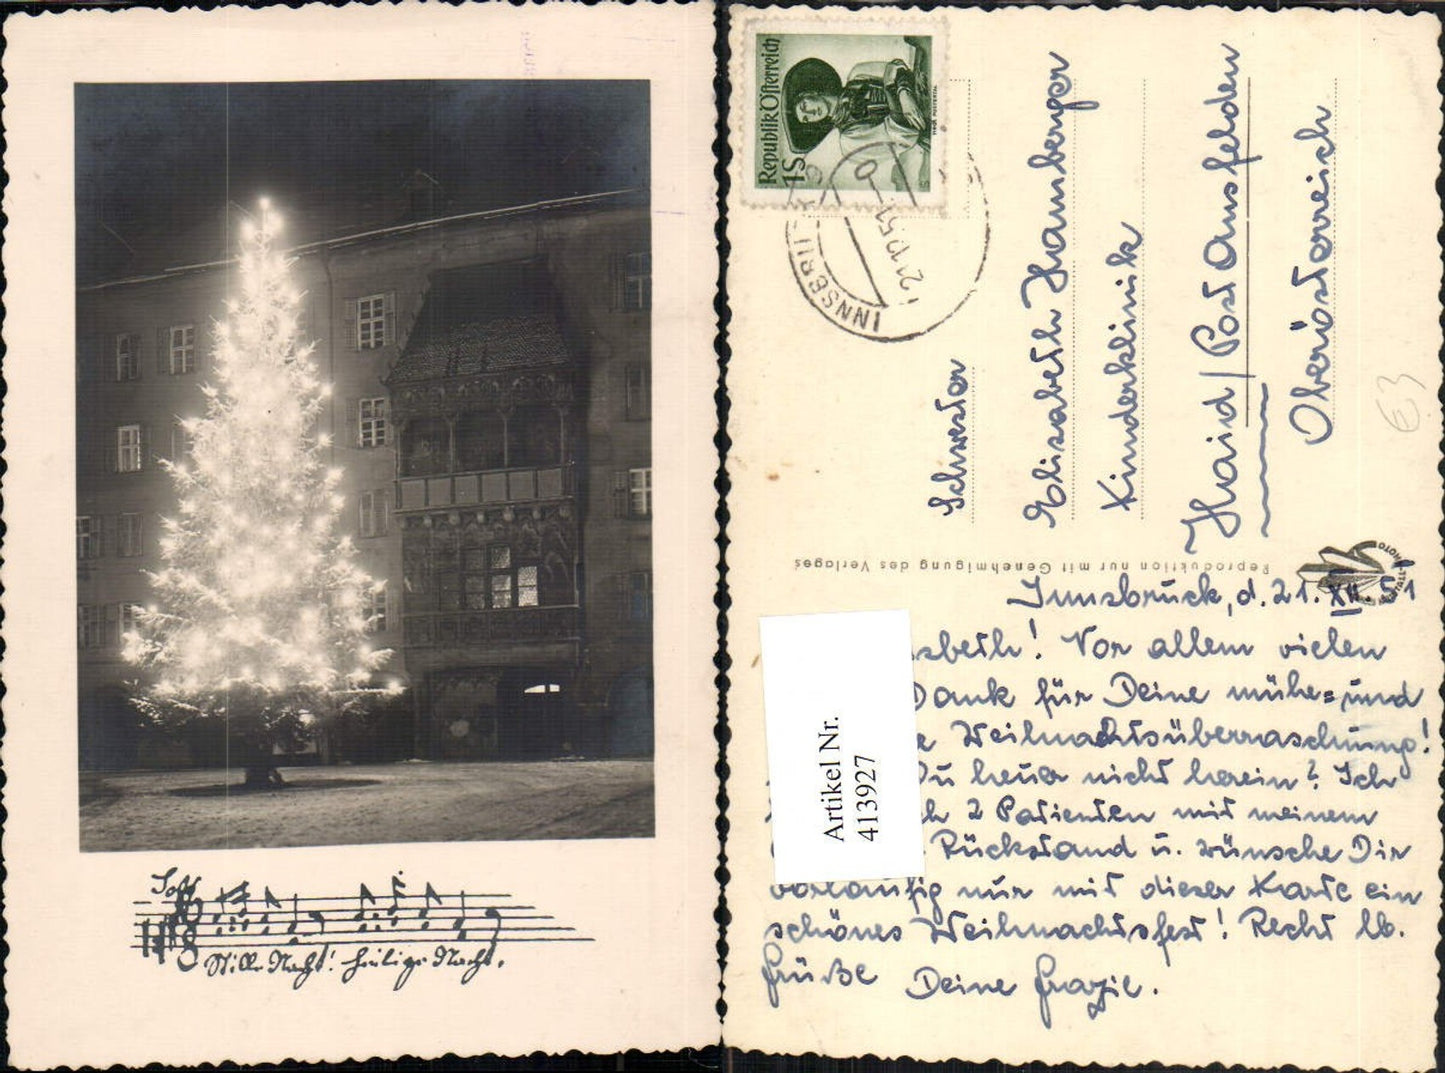 Solo
Stille Nacht! Heilige Nacht,
Republik Österreich
1 S
INNSBRUCK
21.12.51
Schwester
Elisabeth Hamberger
Kinderklinik
Haid / Post Ansfelden
Oberösterreich
E3
Reproduktion nur mit Genehmigung des Verlages
Innsbruck, d. 21. XII. 51
sbeth! Vor allem vielen
Dank für Deine mühe= und
e Weihnachtsüberraschung!
Du heuer nicht herein? Ich
h 2 Patienten mit meinem
Rückstand u. wünsche Dir
vorläufig nur mit dieser Karte ein
schönes Weihnachtsfest! Recht lb.
Grüße Deine
Artikel Nr.
413927